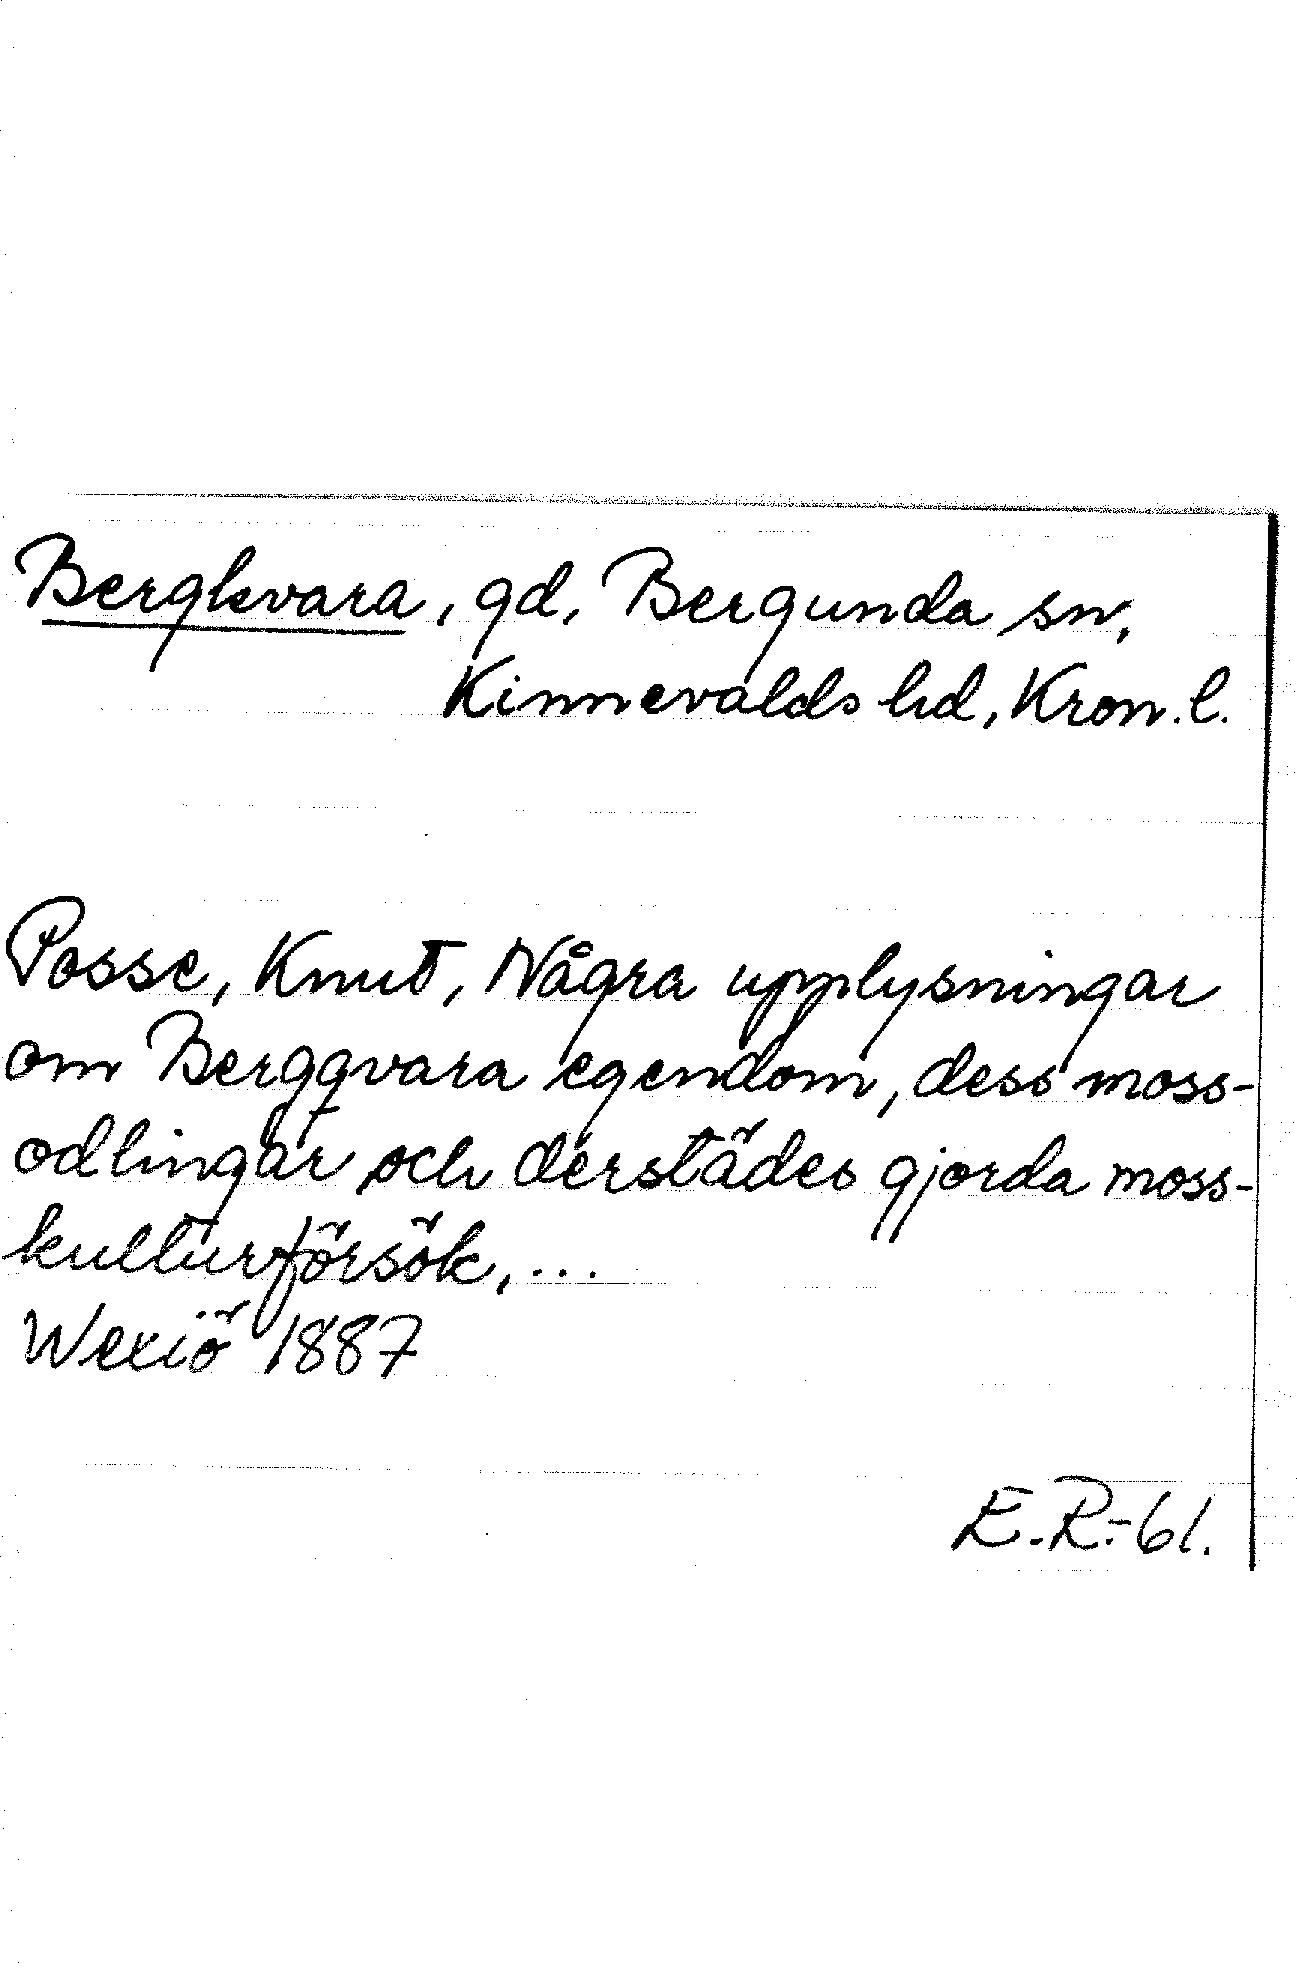 Bergkvara, gd, Bergunda sn,
Kinnevalds hd, Kron. l.
Posse, Knut, Några upplysningar
om Bergqvara egendom, dess moss-
odlingar och derstädes gjorda moss-
kulturförsök, ...
Wexiö 1887
E.R.-61.